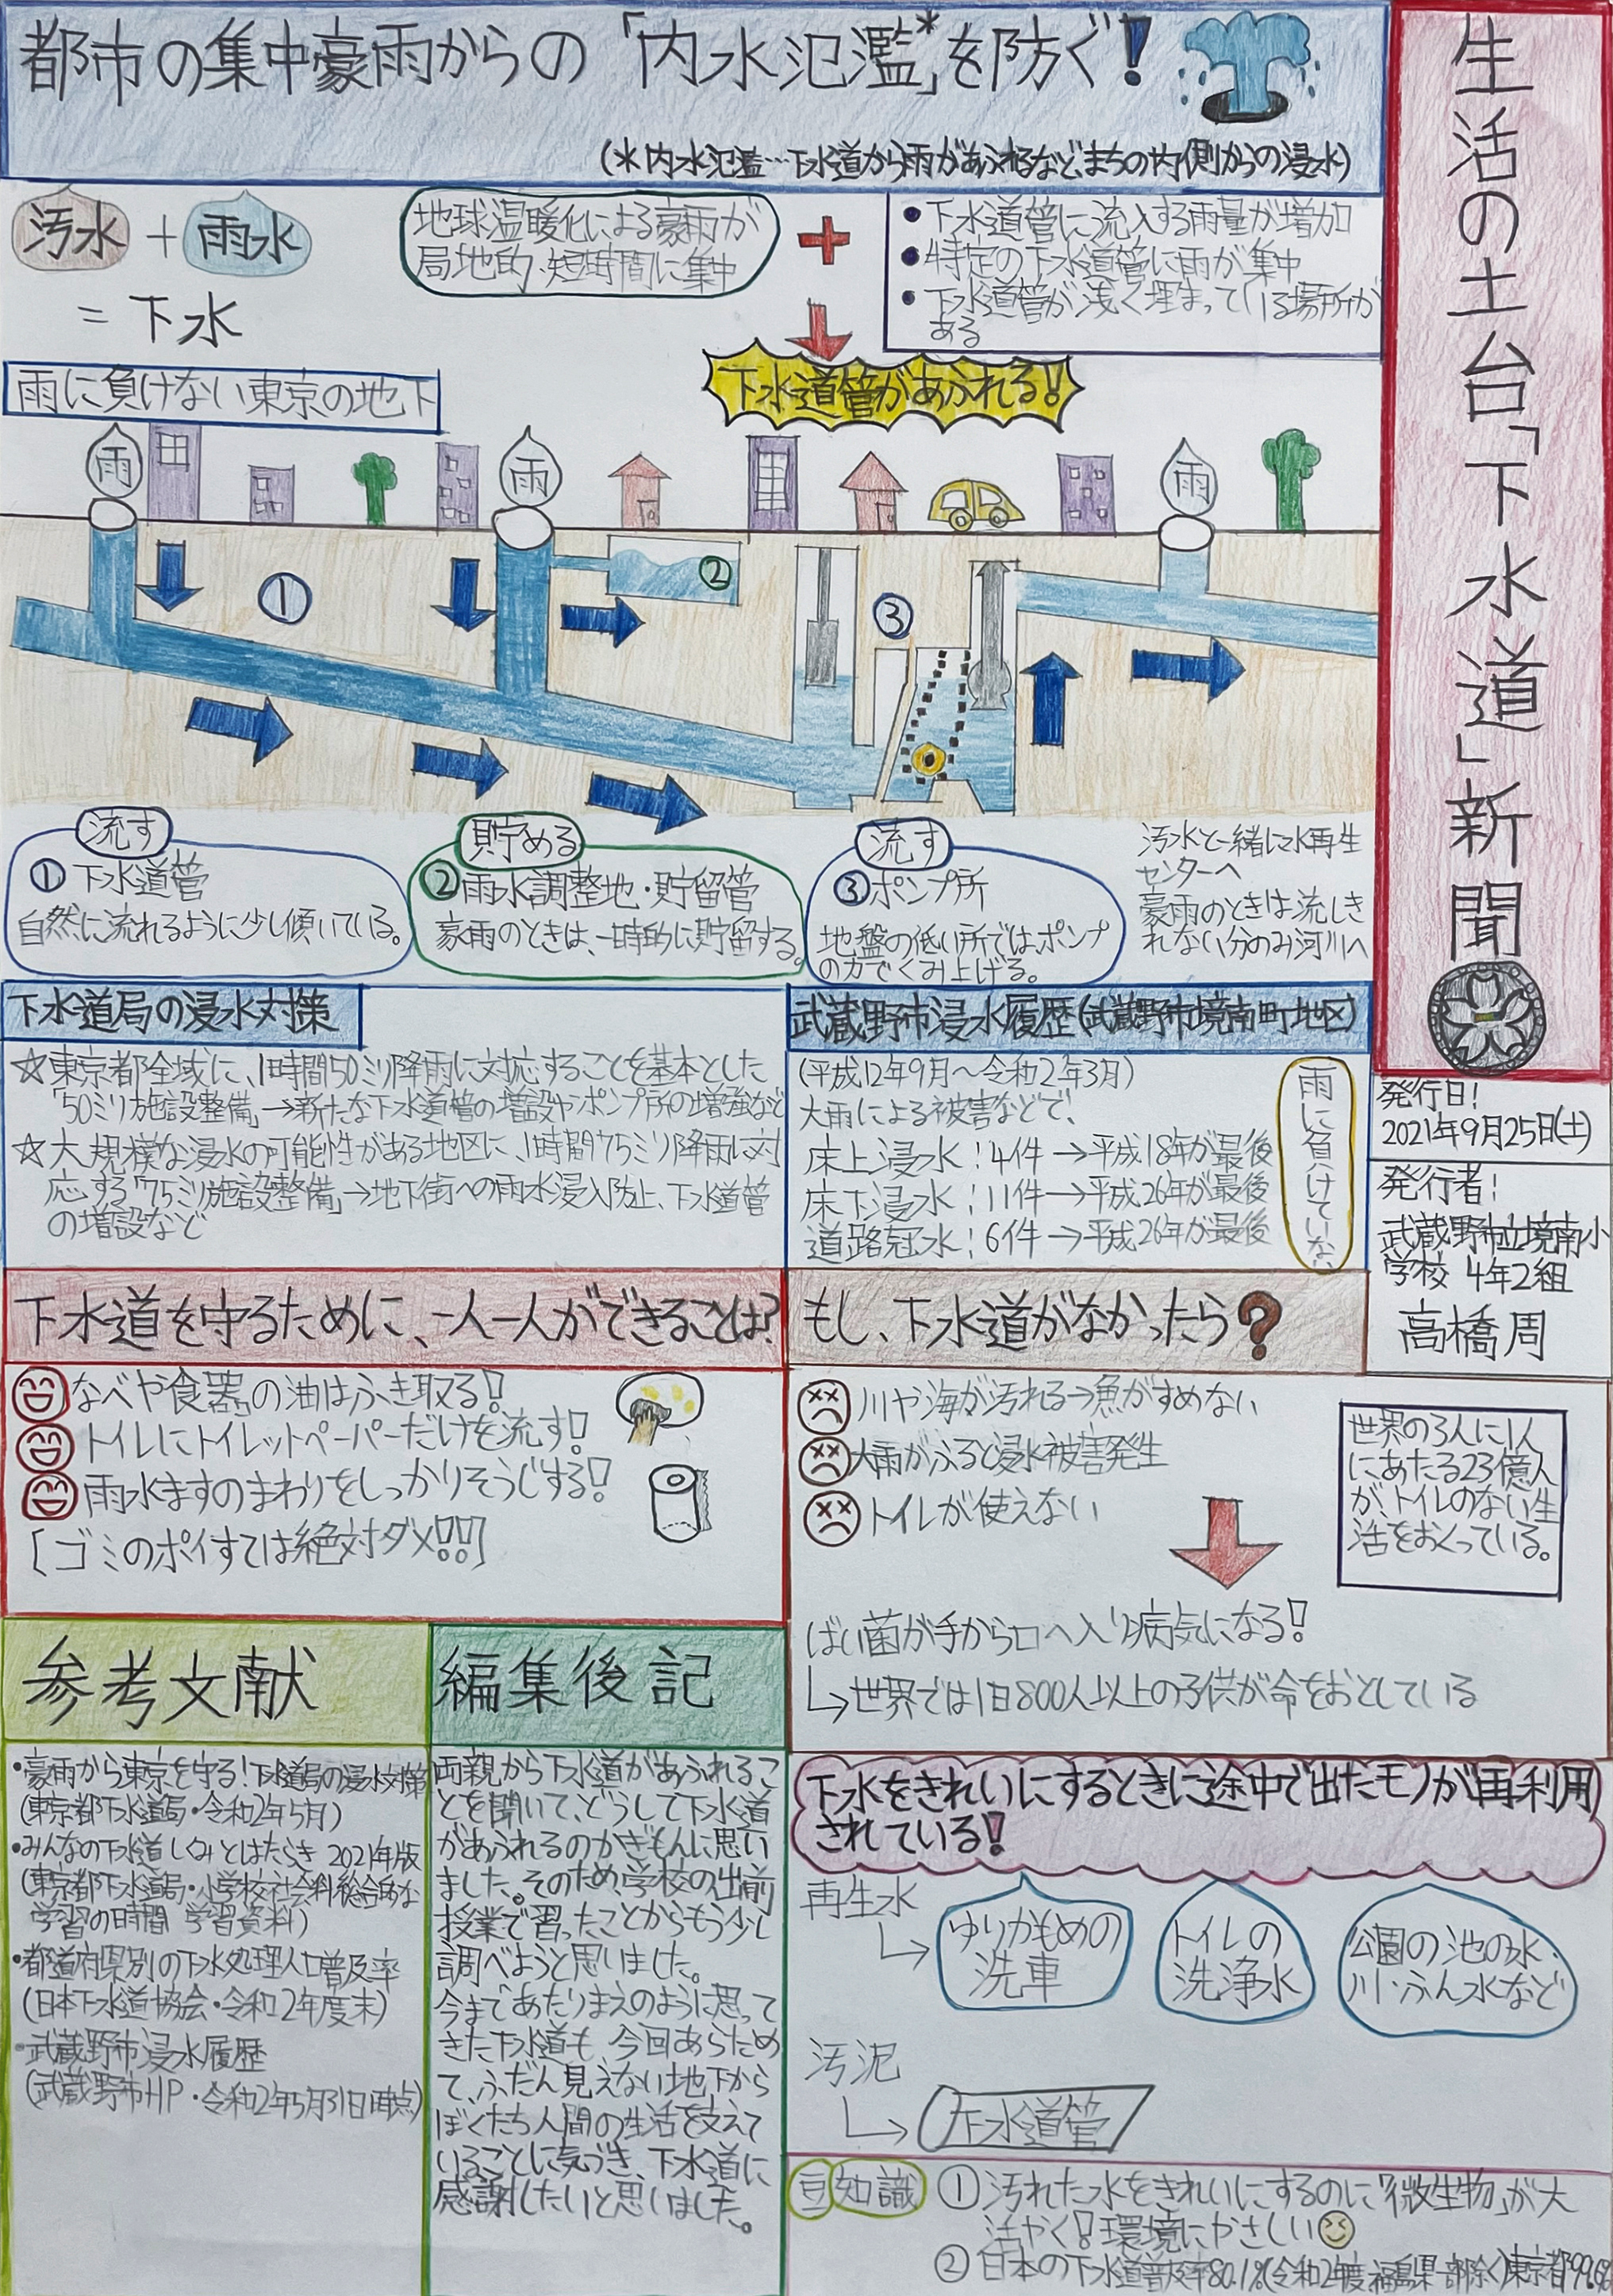 都市の集中豪雨からの「内水氾濫*」を防ぐ!
(*内水氾濫…下水道から雨があふれるなど、まちの内側からの浸水)
生活の土台「下水道」新聞
汚水 + 雨水
= 下水
地球温暖化による豪雨が
局地的・短時間に集中
+
●下水道管に流入する雨量が増加
●特定の下水道管に雨が集中
●下水道管が浅く埋まっている場所が
ある
下水道管があふれる!
雨に負けない東京の地下
雨
雨
雨
①
②
③
流す
①下水道管
自然に流れるように少し傾いている。
貯める
②雨水調整地・貯留管
豪雨のときは、一時的に貯留する。
流す
③ポンプ所
地盤の低い所では、ポンプ
の力でくみ上げる。
汚水と一緒に水再生
センターへ
豪雨のときは流しき
れない分のみ河川へ
下水道局の浸水対策
☆東京都全域に、1時間50ミリ降雨に対応することを基本とした
「50ミリ施設整備」→新たな下水道管の増設やポンプ所の増強など
☆大規模な浸水の可能性がある地区に、1時間75ミリ降雨に対
応する「75ミリ施設整備」→地下街への雨水浸入防止、下水道管
の増設など
武蔵野市浸水履歴(武蔵野市境南町地区)
(平成12年9月〜令和2年3月)
大雨による被害などで、
床上浸水:4件→平成18年が最後
床下浸水:11件→平成26年が最後
道路冠水:6件→平成26年が最後
雨に負けていな
発行日!
2021年9月25日(土)
発行者!
武蔵野市立境南小
学校 4年2組
高橋周
下水道を守るために、一人一人ができることは?
なべや食器の油はふき取る!
トイレにトイレットペーパーだけを流す!
雨水ますのまわりをしっかりそうじする!
[ゴミのポイすては絶対ダメ!!]
もし、下水道がなかったら?
川や海が汚れる→魚がすめない
大雨がふると浸水被害発生
トイレが使えない
世界の3人に1人
にあたる23億人
が、トイレのない生
活をおくっている。
ばい菌が手から口へ入り病気になる!
↳世界では1日800人以上の子供が命をおとしている
参考文献
・豪雨から東京を守る!下水道局の浸水対策
(東京都下水道局・令和2年5月)
・みんなの下水道しくみとはたらき 2021年版
(東京都下水道局・小学校社会科総合的な
学習の時間 学習資料)
・都道府県別の下水処理人口普及率
(日本下水道協会・令和2年度末)
・武蔵野市浸水履歴
(武蔵野市HP・令和2年5月31日時点)
編集後記
両親から下水道があふれるこ
とを聞いて、どうして下水道
があふれるのかぎもんに思い
ました。そのため、学校の出前
授業で習ったことからもう少し
調べようと思いました。
今まであたりまえのように思って
きた下水道も、今回あらためて
て、ふだん見えない地下から
ぼくたち人間の生活を支えて
いることに気づき、下水道に
感謝したいと思いました。
下水をきれいにするときに途中で出たモノが再利用
されている!
再生水
↳ゆりかもめの
洗車
トイレの
洗浄水
公園の池の水・
川・ふん水など
汚泥
↳下水道管
豆知識 ①汚れた水をきれいにするのに「微生物」が大
活やく!環境にやさしい
②日本の下水道普及率80.1%(令和2年度福島県一部除く)東京都99.6%